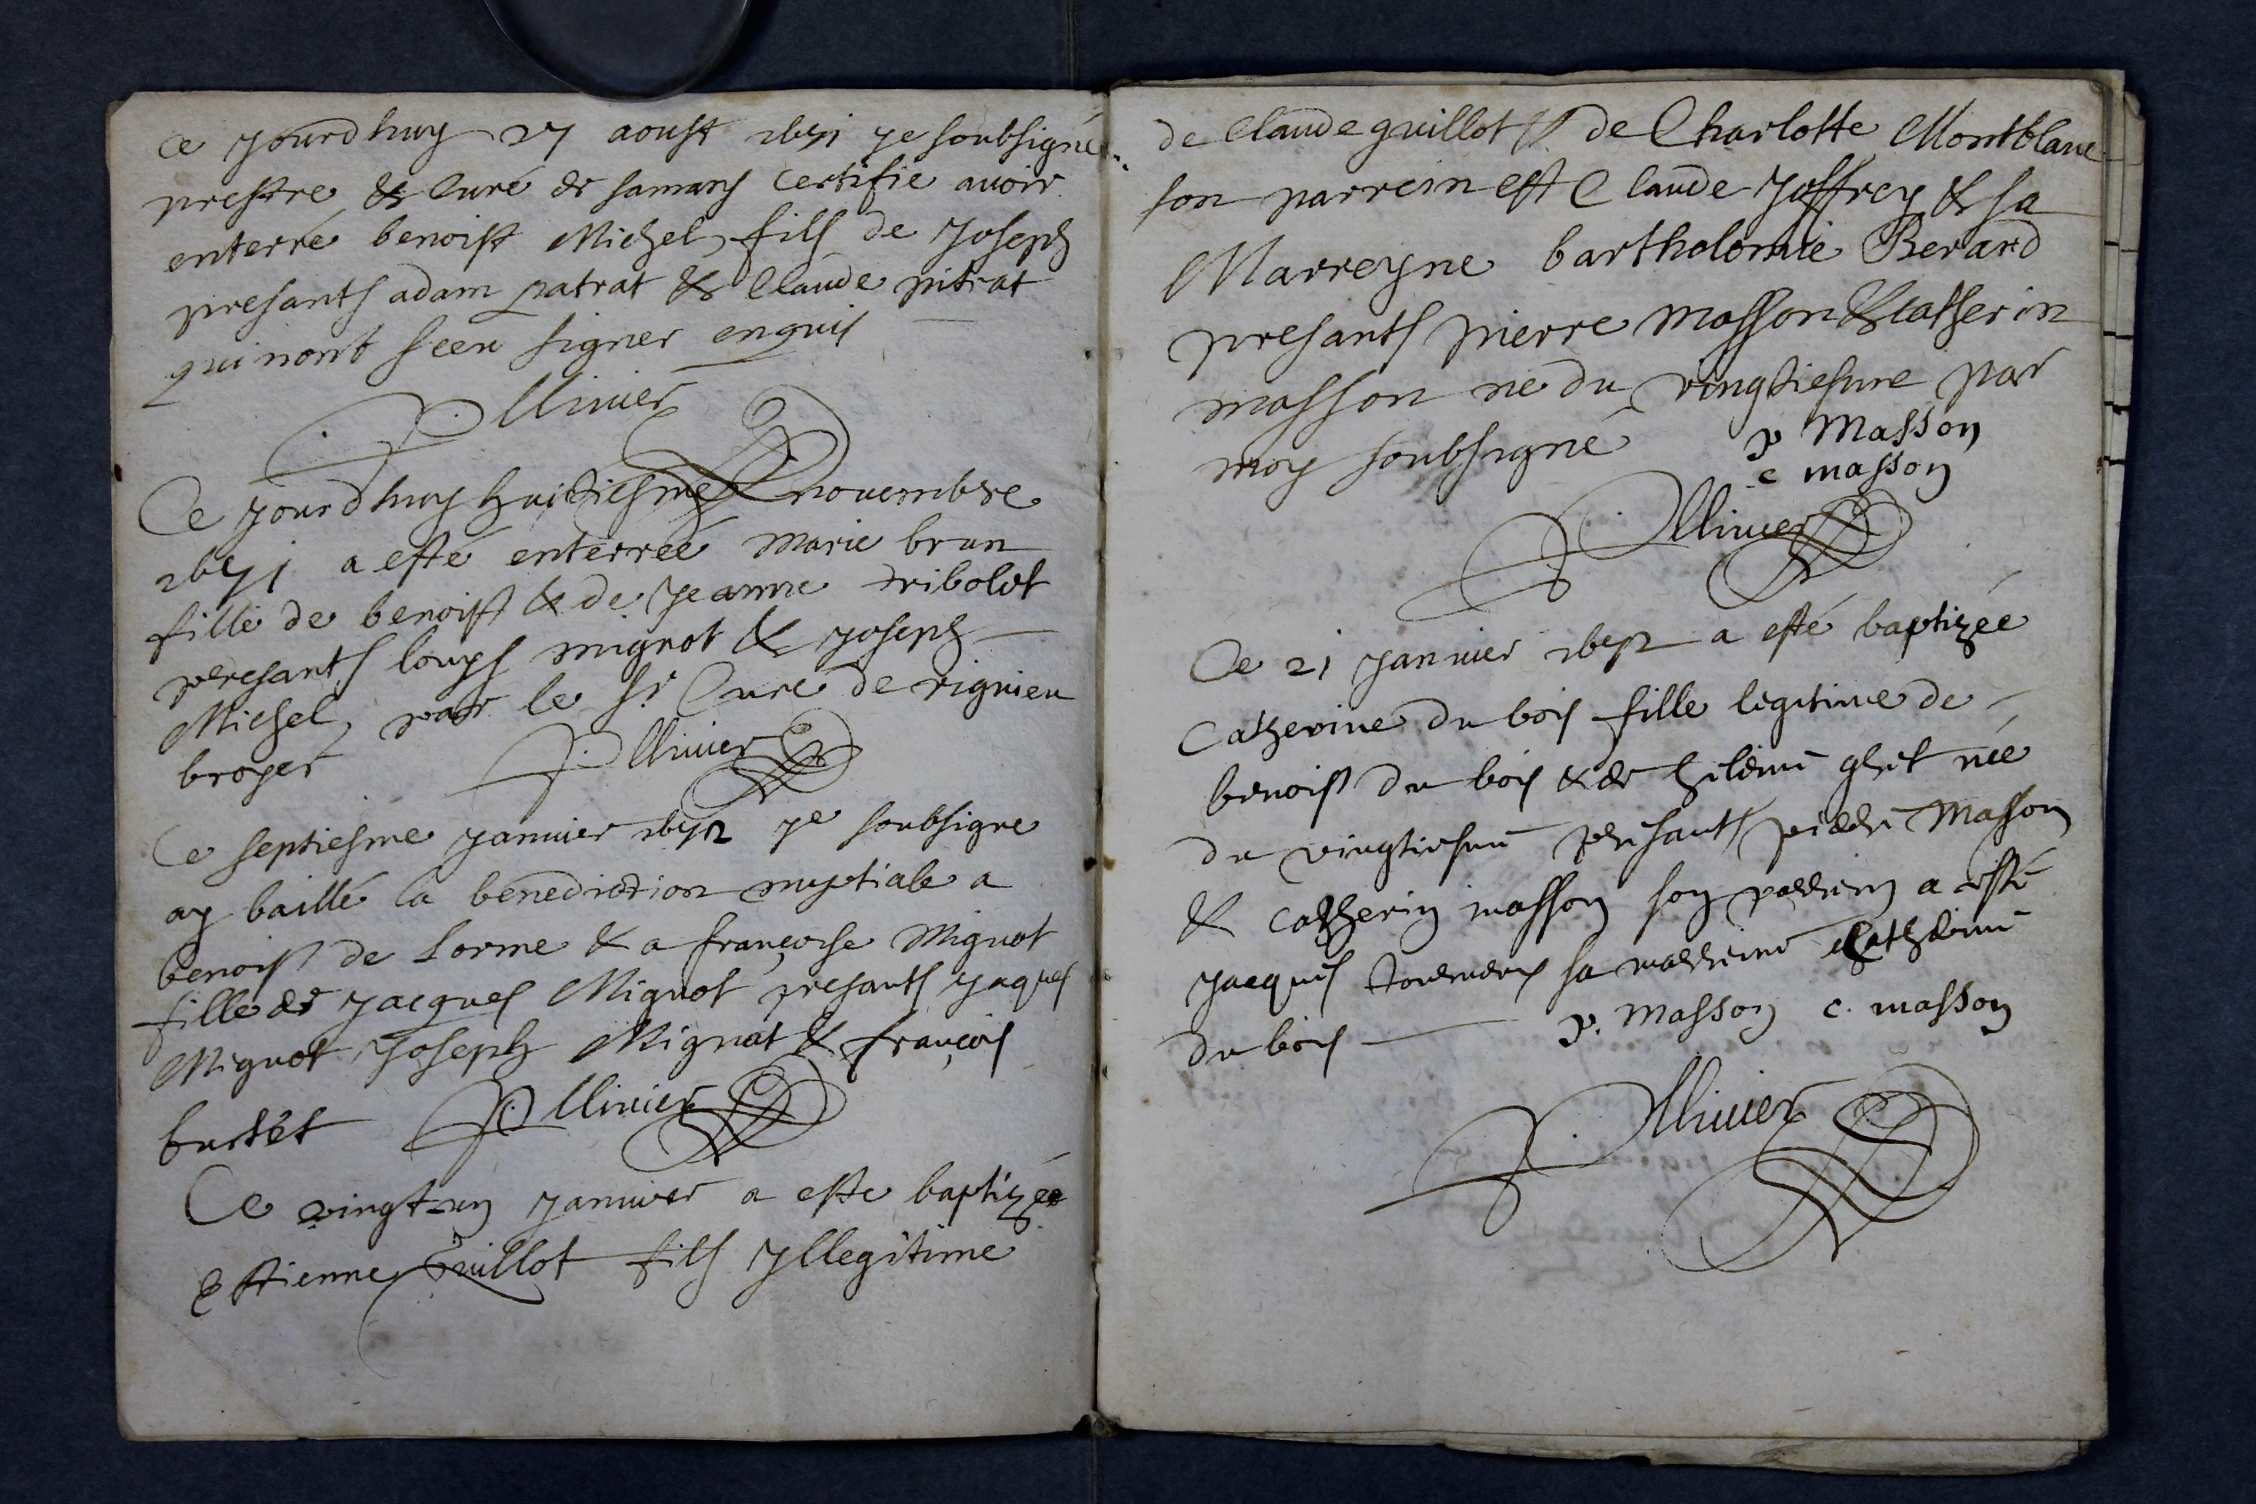 Ce jourdhuy 27 aoust 1671 je soubsigné
prestre & Curé de samans Certifie avoir
enterré benoist Michel, fils de Joseph
presants adam patrat & Claude pitrat
qui nont sceu signer enquis
J. Ollivier
Ce jourdhuy huictiesme novembre
1671 a esté enterrée Marie brun
fille de benoist & de Jeanne tribolet
presants louys mignot & Joseph
Michel, par le Sr. Curé de rignieu
broyer J. Ollivier
Ce septiesme janvier 1672 je soubsigne
ay baillé la benediction nuptiale a
benoist de Lorme & a françoise Mignot
fille de Jacques Mignot presants Jaques
Mignot Joseph Mignot & françois
buttet J. Ollivier
Ce vingt-un janvier a esté baptizée
Estienne Guillot fils yllegitime
de Claude guillot & de Charlotte Montblanc
son parrein est Claude Joffrey & sa
Marreyne bartholomie Berard
presants pierre masson & Catherin
masson né du vingtiesme par
moy soubsigné p Masson
c masson
J. Ollivier
Ce 21 janvier 1672 a esté baptizée
Catherine du bois fille legitime de
benoist du bois & de heleine née
du vingtiesme presants pierre Masson
& Catherin masson son parrein a esté
Jacques sa marreine Catherine
du bois p. Masson c. masson
J. Ollivier